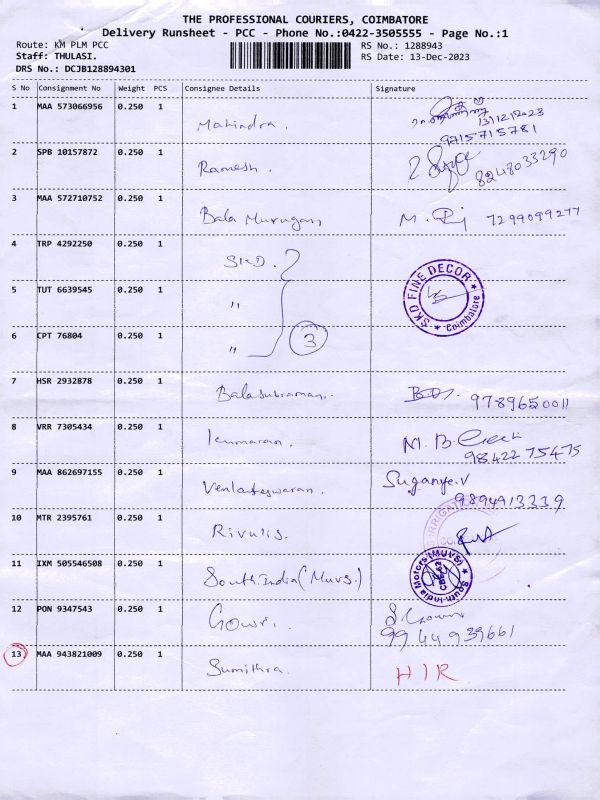 THE PROFESSIONAL COURIERS, COIMBATORE
Delivery Runsheet - PCC - Phone No.:0422-3505555 - Page No.:1
Route: KM PLM PCC
RS No.: 1288943
Staff: THULASI.
RS Date: 13-Dec-2023
DRS No.: DCJB128894301
S No Consignment No Weight PCS Consignee Details Signature
1 MAA 573066956 0.250 1 Mahindra. 13/12/2023
9715715781
2 SPB 10157872 0.250 1 Ramesh. 8248033290
3 MAA 572710752 0.250 1 Bala Murugan M. 7299099277
4 TRP 4292250 0.250 1 SKD.
5 TUT 6639545 0.250 1 "
SKD FINE DECOR Coimbatore
6 CPT 76804 0.250 1 " 3
7 HSR 2932878 0.250 1 Balasubraman. 9789650011
8 VRR 7305434 0.250 1 M. B.
9842275475
9 MAA 862697155 0.250 1 Venkateswaran. Suganye.V
9894913339
10 MTR 2395761 0.250 1 Rivulis.
11 IXM 505546508 0.250 1 South India (Muvs.) South India Motors (MUVS)
12 PON 9347543 0.250 1 Gowri. S. Gowri
9944939661
13 MAA 943821009 0.250 1 Sumithra. HIR